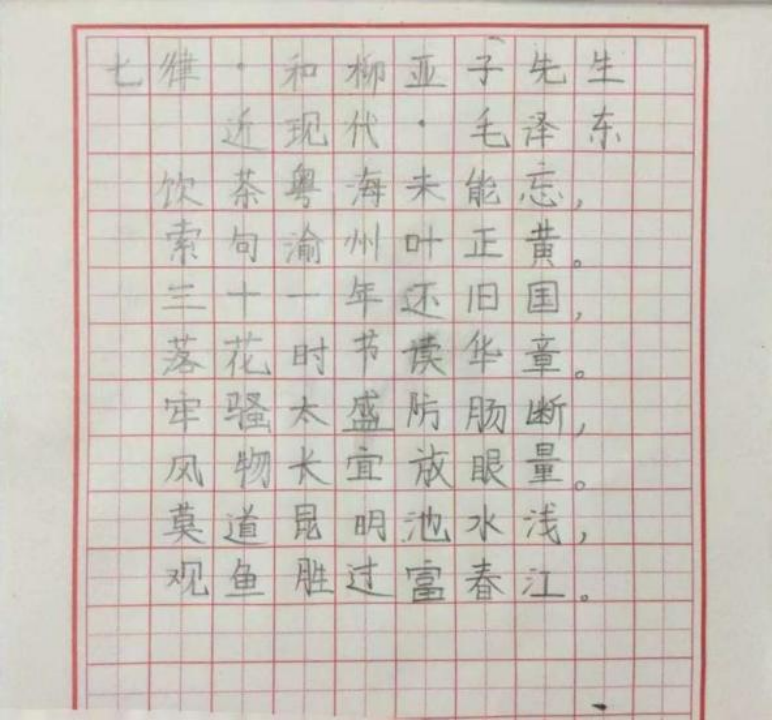 七律·和柳亚子先生
近现代·毛泽东
饮茶粤海未能忘，
索句渝州叶正黄。
三十一年还旧国，
落花时节读华章。
牢骚太盛防肠断，
风物长宜放眼量。
莫道昆明池水浅，
观鱼胜过富春江。